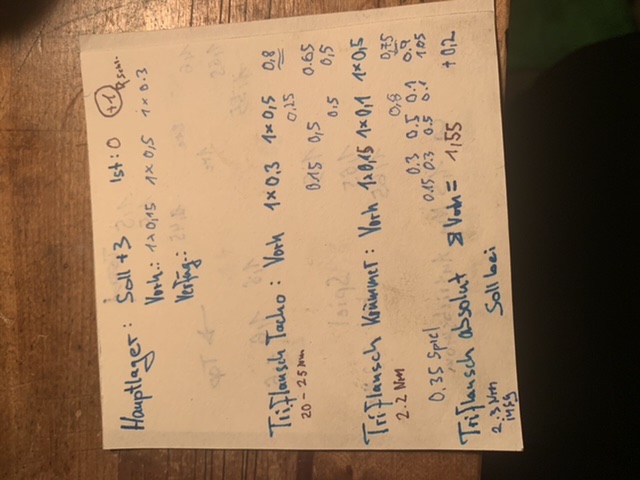 Hauptlager: Soll +3 Ist: 0 +1
Vorh.: 1x0,15 1x0,5 1x0.3
Verfüg.:
Triflansch Tacho: Vorh 1x0,3 1x0,5 0,8
20-25 Nm 0,25
0.15 0,5 0.65
0,5 0,5
Triflansch Krümmer: Vorh 1x0,15 1x0,1 1x0,5 0,75
2-2 Nm 0,8
0,3 0.5 0.1 0.9
0.35 Spiel 0.15 0.3 0.5 0.1 1.05
Triflansch absolut Vorh = 1,55 +0,2
2.3 Nm Soll bei